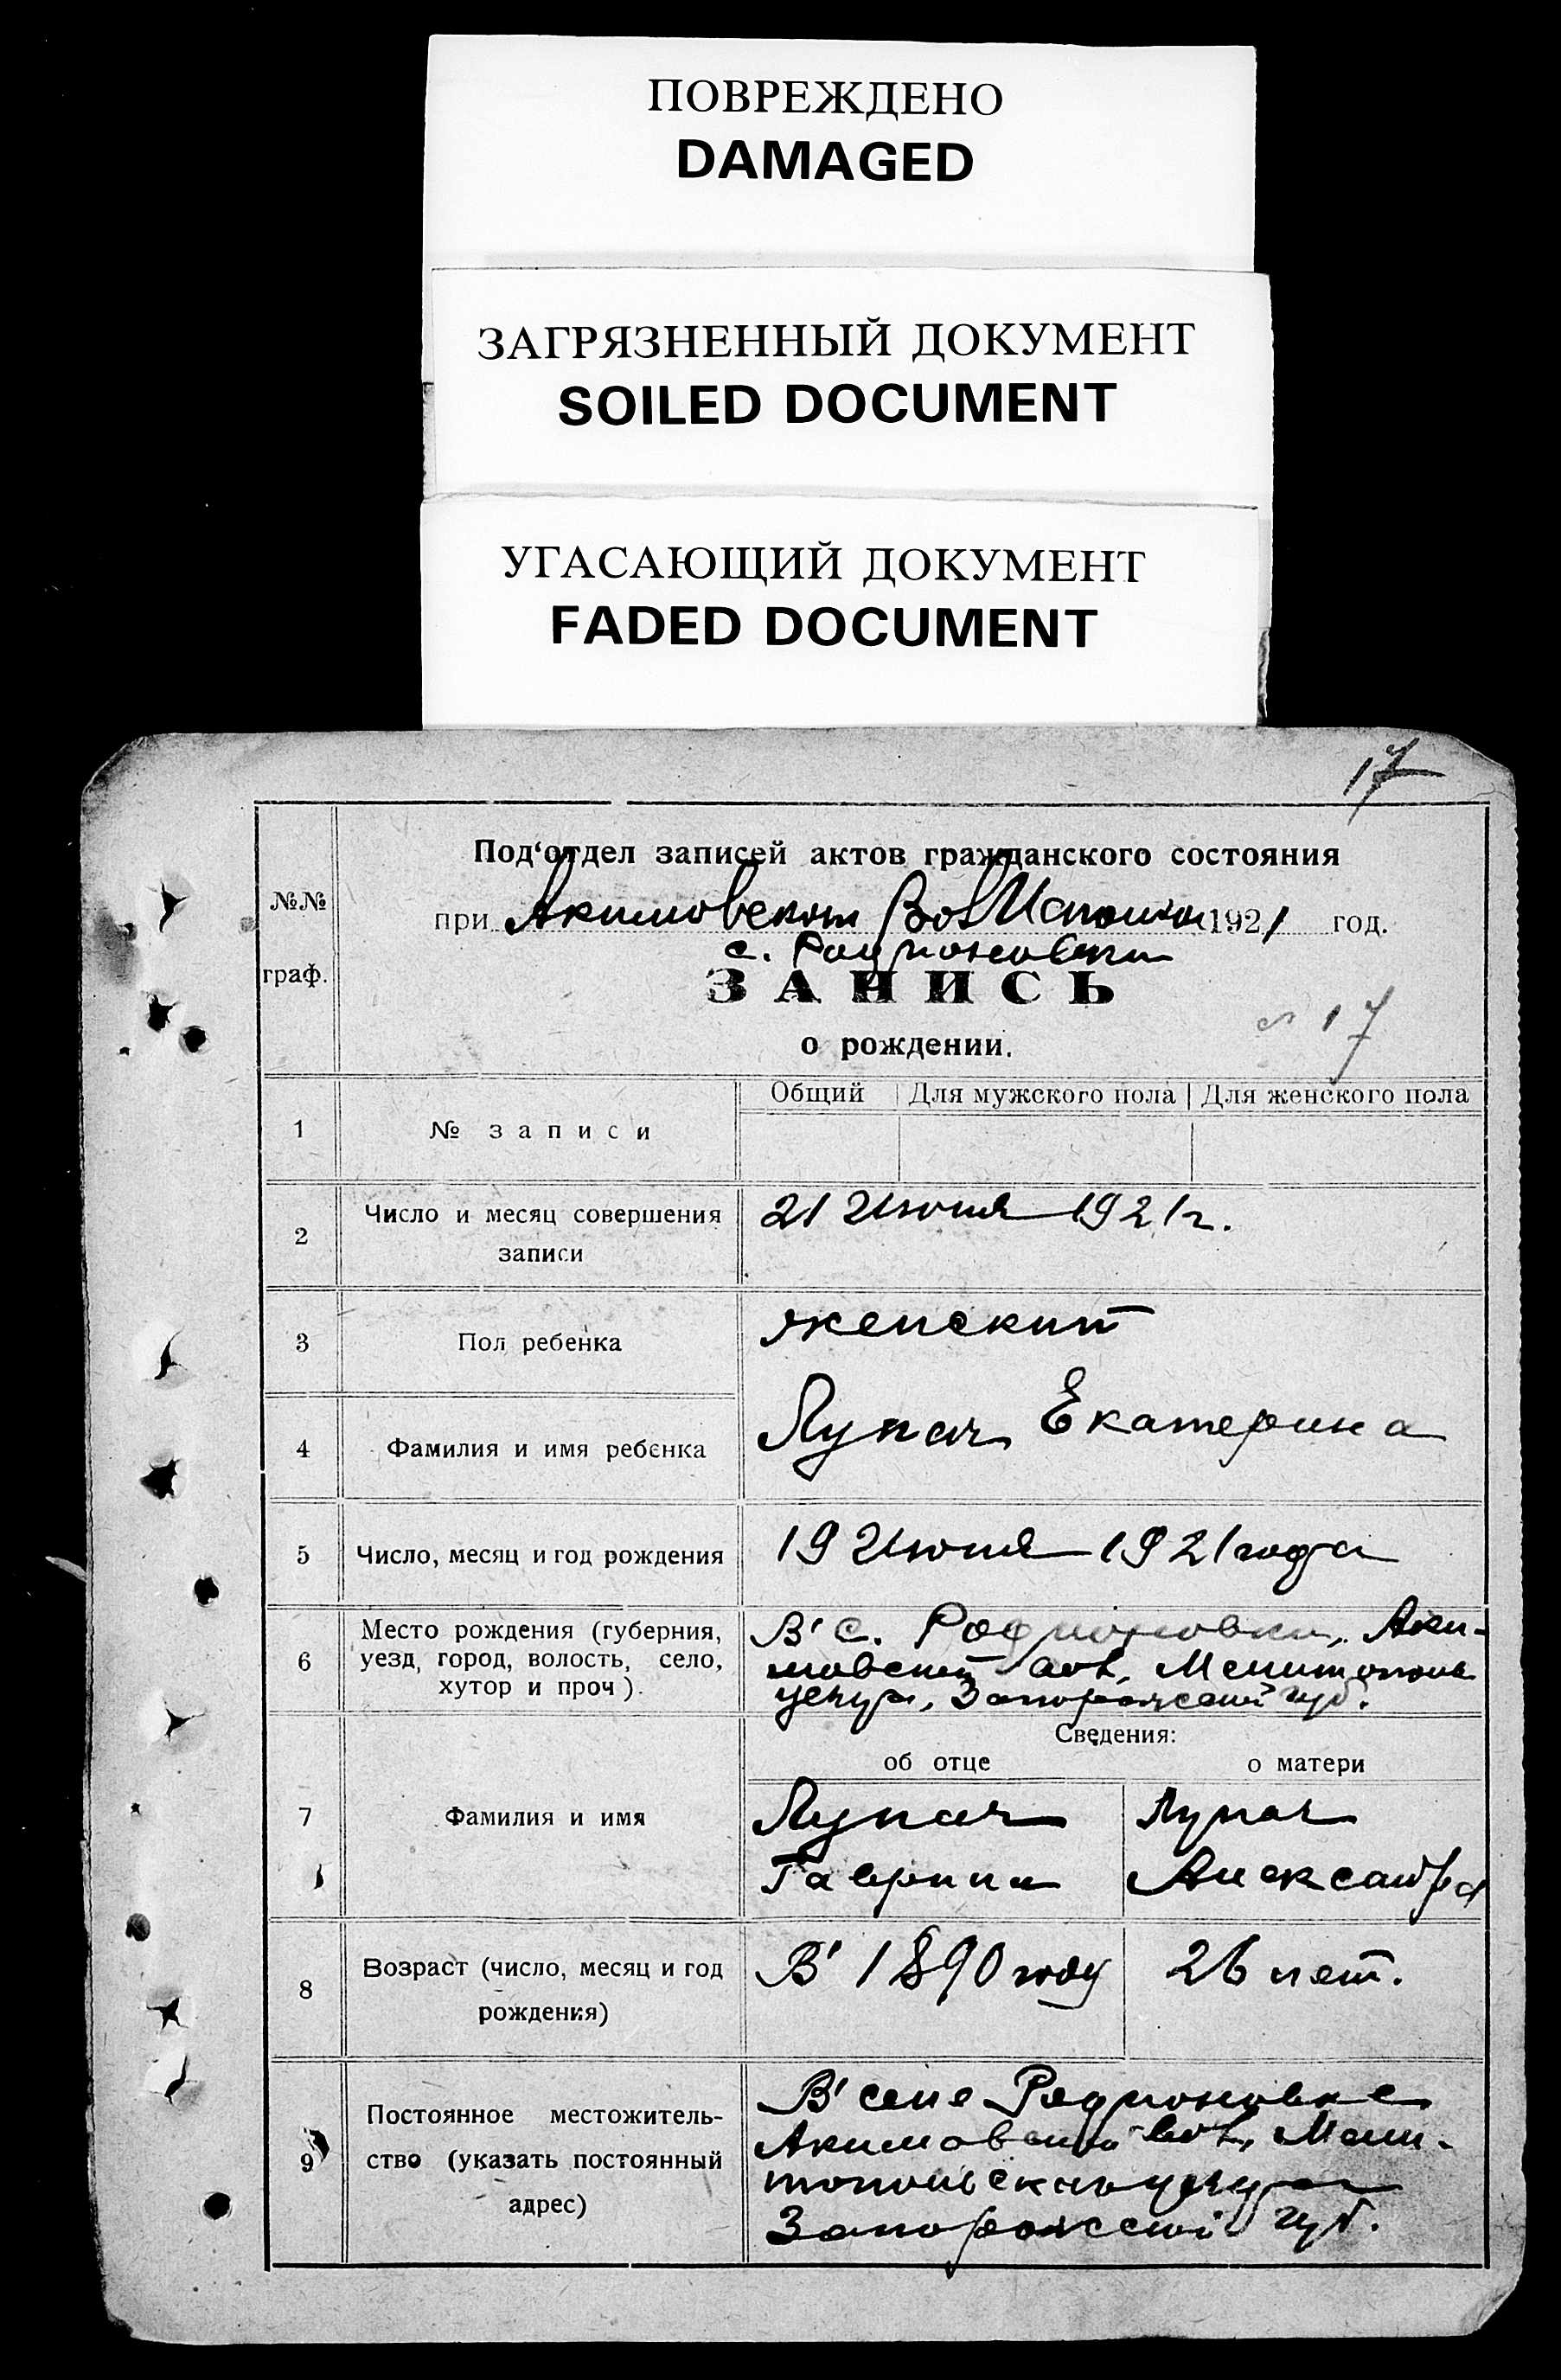 ПОВРЕЖДЕНО
DAMAGED
ЗАГРЯЗНЕННЫЙ ДОКУМЕНТ
SOILED DOCUMENT
УГАСАЮЩИЙ ДОКУМЕНТ
FADED DOCUMENT
17
Под‘отдел записей актов гражданского состояния
№№ граф.
при Акимовском 1921 год.
с. Родионовки
ЗАПИСЬ
17
о рождении.
Общий Для мужского пола Для женского пола
1 № записи
2 Число и месяц совершения записи
21 Июня 1921 г.
3 Пол ребенка
женский
4 Фамилия и имя ребенка
Лупач Екатерина
5 Число, месяц и год рождения
19 Июня 1921 года
6 Место рождения (губерния,
уезд, город, волость, село,
хутор и проч).
В' с. Родионовки, Аки-
мовской вол, Мелитополь
уезда, Запорожской губ.
Сведения:
об отце о матери
7 Фамилия и имя
Лупач Лупач
Гавриил Александра
8 Возраст (число, месяц и год
рождения)
В' 1890 году 26 лет.
9 Постоянное местожитель-
ство (указать постоянный
адрес)
В' селе Родионовке
Акимовской вол, Мели-
топольского уезда
Запорожской губ.